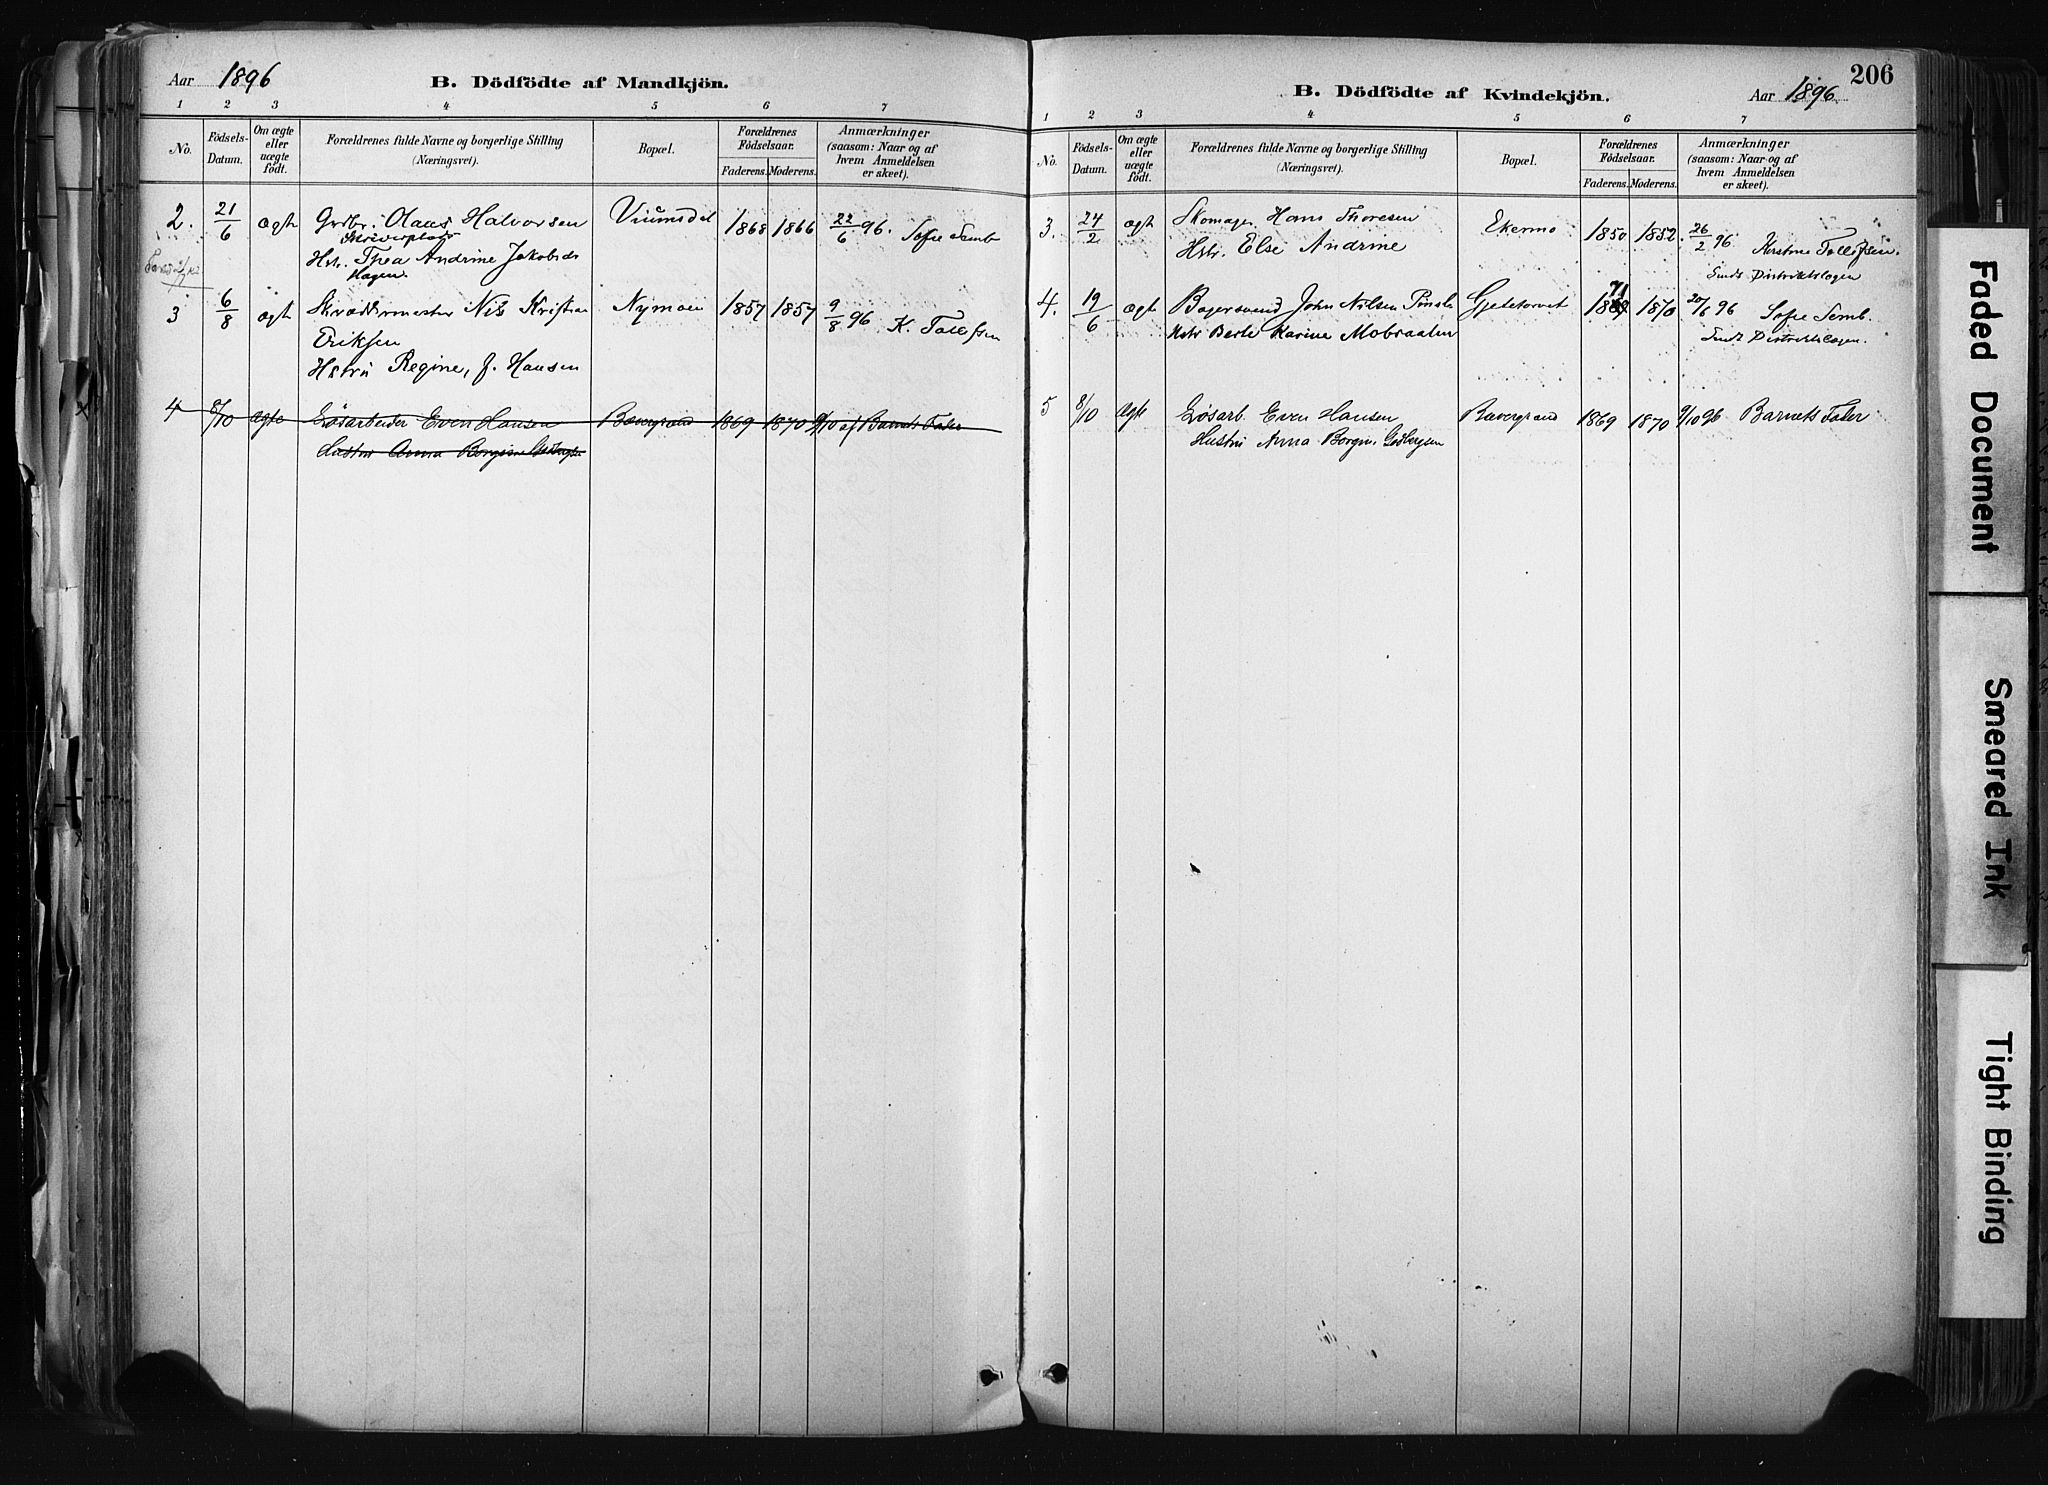 Aar 1896
B. Dödfödte af Mandkjön.
1 2 3 4 5 6 7
No. Födsels-Datum. Om ægte eller uægte födt. Forældrenes fulde Navne og borgerlige Stilling (Næringsvei). Bopæl. Forældrenes Födselsaar. Faderens. Moderens. Anmærkninger (saasom: Naar og af hvem Anmeldelsen er skeet).
2. 21/6 ægt Grdbr. Olaus Halvorsen Viumsdal 1868 1866 22/6 96. Sofie Temb
Skriverplads
Hstr. Thea Andrine Jakobsdr
Hagen
3 6/8 ægt Skræddermester Nils Kristian Nymoen 1857 1857 9/8 96 K. Tollefsen
Eriksen
Hstru Regine, J. Hansen
4 8/10 ægte Løsarbeider Even Hansen Bævergrand 1869 1870 9/10 af Barnets Fader
Hustru Anna Borgine Gulbrandsen
206
B. Dödfödte af Kvindekjön.
Aar 1896
1 2 3 4 5 6 7
No. Födsels-Datum. Om ægte eller uægte födt. Forældrenes fulde Navne og borgerlige Stilling (Næringsvei). Bopæl. Forældrenes Födselsaar. Faderens. Moderens. Anmærkninger (saasom: Naar og af hvem Anmeldelsen er skeet).
3. 24/2 ægt Skomager Hans Thoresen Ekermo 1850 1852 26/2 96 Kirstine Tollefsen.
Hstr. Else Andrine
Smdt Distriktslægen
4. 19/6 ægt Bagersvend John Nilsen Gjetetorvet 1871 1870 20/6 96 Sofie Temb.
Hstr Berte Karine Mobraaten Smdt Distriktslægen.
5 8/10 ægte Løsarb. Even Hansen Bævergrand 1869 1870 9/10 96 Barnets Fader
Hustru Anna Borgine
Faded Document
Smeared Ink
Tight Binding